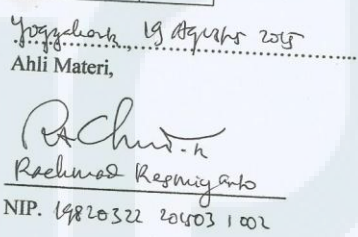 Yogyakarta, 19 Agustus 2015
Ahli Materi,
Rachmad Resmiyanto
NIP. 19820322 201503 1 002